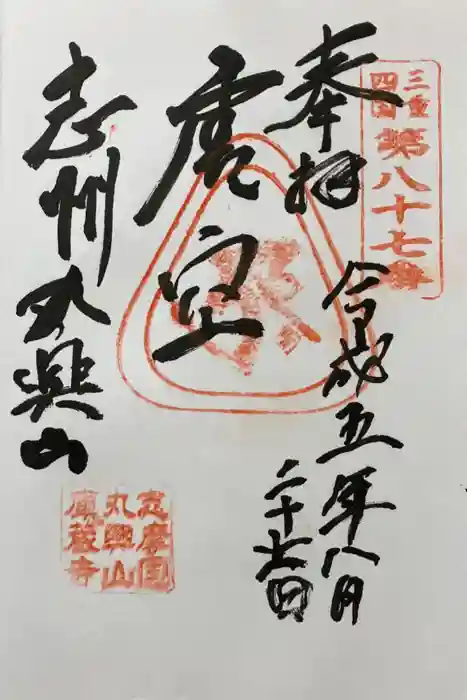 三重
四国
第八十七番
奉拝
令和五年八月
二十七日
虚空
志州
丸興山
志摩国
丸興山
庫蔵寺